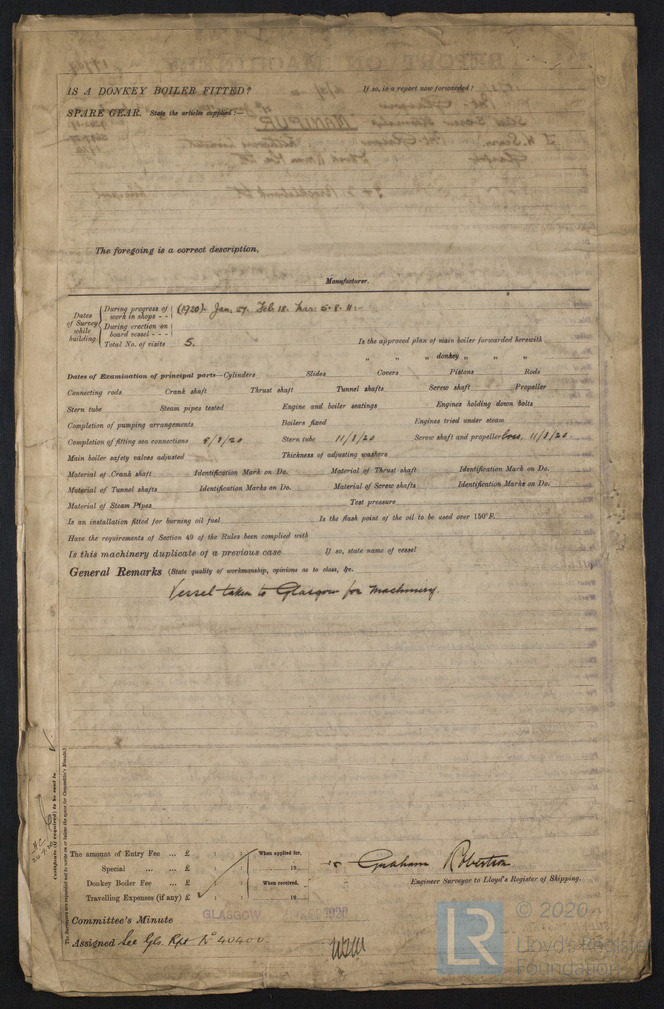 IS A DONKEY BOILER FITTED? If so, is a report now forwarded?
SPARE GEAR. State the articles supplied:—
The foregoing is a correct description,
Manufacturer.
Dates of Survey while building
During progress of work in shops - - (1920). Jan. 27. Feb 18. Mar. 5. 8. 11.
During erection on board vessel - - -
Total No. of visits 5. Is the approved plan of main boiler forwarded herewith
" " " donkey " " "
Dates of Examination of principal parts—Cylinders Slides Covers Pistons Rods
Connecting rods Crank shaft Thrust shaft Tunnel shafts Screw shaft Propeller
Stern tube Steam pipes tested Engine and boiler seatings Engines holding down bolts
Completion of pumping arrangements Boilers fixed Engines tried under steam
Completion of fitting sea connections 5/3/20 Stern tube 11/3/20 Screw shaft and propeller boss, 11/3/20
Main boiler safety valves adjusted Thickness of adjusting washers
Material of Crank shaft Identification Mark on Do. Material of Thrust shaft Identification Mark on Do.
Material of Tunnel shafts Identification Marks on Do. Material of Screw shafts Identification Marks on Do.
Material of Steam Pipes Test pressure
Is an installation fitted for burning oil fuel Is the flash point of the oil to be used over 150°F.
Have the requirements of Section 49 of the Rules been complied with
Is this machinery duplicate of a previous case If so, state name of vessel
General Remarks (State quality of workmanship, opinions as to class, &c.
Vessel taken to Glasgow for machinery.
Certificate (if required) to be sent to
The amount of Entry Fee ... £ : : When applied for,
Special ... ... £ : : 19
Donkey Boiler Fee ... £ : : When received,
Travelling Expenses (if any) £ : : 19
Graham Robertson
Engineer Surveyor to Lloyd's Register of Shipping.
Committee's Minute GLASGOW SEP 1920
Assigned See Gls. Rpt No 40400
LR © 2020
Lloyd's Register
Foundation